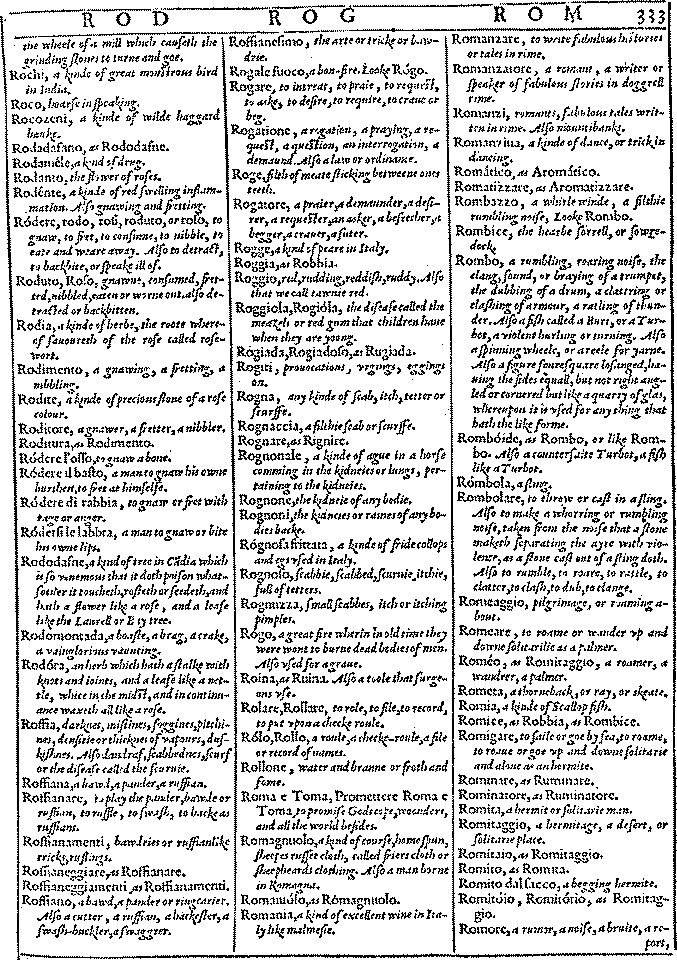 ROD ROG ROM 333
the wheele of a mill which causeth the
grinding stones to turne and goe.
Rochi, a kinde of great monstrous bird
in India.
Roco, hoarse in speaking.
Rocozeni, a kinde of wilde haggard
hauke.
Rodadafano, as Rododafne.
Rodaméle, a kind of drug.
Rodanto, the flower of roses.
Rodénte, a kinde of red swelling inflam-
mation. Also gnawing and fretting.
Ródere, rodo, rosi, roduto, or roso, to
gnaw, to fret, to consume, to nibble, to
eate and weare away. Also to detract,
to backbite, or speake ill of.
Roduto, Roso, gnawne, consumed, fret-
ted, nibbled, eaten or worne out. also de-
tracted or backbitten.
Rodia, a kinde of herbe, the roote where-
of sauoureth of the rose called rose-
wort.
Rodimento, a gnawing, a fretting, a
nibbling.
Rodite, a kinde of precious stone of a rose
colour.
Roditore, a gnawer, a fretter, a nibbler.
Roditura, as Rodimento.
Ródere l'osso, to gnaw a bone.
Ródere il basto, a man to gnaw his owne
burthen, to fret at himselfe.
Ródere di rabbia, to gnaw or fret with
rage or anger.
Ródersi le labbra, a man to gnaw or bite
his owne lips.
Rododafne, a kind of tree in Cādia which
is so venemous that it doth poison what-
soeuer it toucheth, rosteth or seedeth, and
hath a flower like a rose, and a leafe
like the Laurell or Bay tree.
Rodomontada, a boaste, a brag, a crake,
a vainglorious vaunting.
Rodóra, an herb which hath a stalke with
knots and ioints, and a leafe like a net-
tle, white in the midst, and in continu-
ance waxeth all like a rose.
Roffia, darknes, mistines, foggines, pitchi-
nes, densitie or thicknes of vapours, dus-
kishnes. Also dandraf, scabbednes, scurf
or the disease called the scurnie.
Roffiana, a bawd, a pander, a ruffian.
Roffianare, to play the pander, bawde or
ruffian, to ruffle, to swash, to backe as
ruffians.
Roffianamenti, bawdries or ruffianlike
tricks, ruffings.
Roffianeggiare, as Roffianare.
Roffianeggiamenti, as Roffianamenti.
Roffiano, a bawd, a pander or ring carier.
Also a cutter, a ruffian, a hackester, a
swash-buckler, a swaggrer.
Roffianesimo, the arte or tricke or baw-
drie.
Rogale fuoco, a bon-fire. Looke Rógo.
Rogare, to intreat, to praie, to request,
to aske, to desire, to require, to craue or
beg.
Rogatione, a rogation, a praying, a re-
quest, a question, an interrogation, a
demaund. Also a law or ordinance.
Roge, filth of meate sticking betweene ones
teeth.
Rogatore, a praier, a demaunder, a desi-
rer, a requester, an asker, a beseecher, a
begger, a crauer, a suter.
Rogge, a kind of peare in Italy.
Roggia, as Robbia.
Roggio, red, rudding, reddish, ruddy. Also
that we call tawnie red.
Roggiola, Rogióla, the disease called the
meazels or red gum that children haue
when they are yong.
Rógiada, Rogiadoso, as Rugiada.
Rogiti, prouocations, vrgings, eggings
on.
Rogna, any kinde of scab, itch, tetter or
scurffe.
Rognaccia, a filthie scab or scurffe.
Rognare, as Rignire.
Rognonale, a kinde of ague in a horse
comming in the kidneies or lungs, per-
taining to the kidneies.
Rognone, the kidneie of any bodie.
Rognoni, the kidneies or raines of any bo-
dies backe.
Rógnosa frittata, a kinde of fride collops
and egs vsed in Italy.
Rognoso, scabbie, scabbed, scurnie, itchie,
full of tetters.
Rognuzza, small scabbes, itch or itching
pimples.
Rógo, a great fire wharin in old time they
were wont to burne dead bodies of men.
Also vsed for a graue.
Roina, as Ruina. Also a toole that surge-
ons vse.
Rolare, Rollare, to role, to file, to record,
to put vpon a checke roule.
Rólo, Rollo, a roule, a checke-roule, a file
or record of names.
Rollone, water and branne or froth and
fome.
Roma e Toma, Promettere Roma e
Toma, to promise Godscope, woonders,
and all the world besides.
Romagnuolo, a kind of course, home spun,
sheepes russet cloth, called friers cloth or
sheepheards clothing. Also a man borne
in Romagna.
Romanuólo, as Romagnuolo.
Romania, a kind of excellent wine in Ita-
ly like malmesie.
Romanzare, to write fabulous histories
or tales in rime.
Romanzatore, a romant, a writer or
speaker of fabulous stories in doggrell
rime.
Romanzi, romants, fabulous tales writ-
ten in rime. Also mountibanks.
Romanzina, a kinde of dance, or trick in
dancing.
Romático, as Aromático.
Romatizzare, as Aromatizzare.
Rombazzo, a whirle winde, a filthie
rumbling noise, Looke Rombo.
Rombice, the hearbe sorrell, or sowre-
dock.
Rombo, a rumbling, roaring noise, the
clang, sound, or braying of a trumpet,
the dubbing of a drum, a clattring or
clashing of armour, a ratling of thun-
der. Also a fish called a Burt, or a Tur-
bot, a violent hurling or turning. Also
a spinning wheele, or a reele for yarne.
Also a figure foure square losanged, ha-
uing the sides equall, but not right ang-
led or cornered but like a quarry of glas,
whereupon it is vsed for any thing that
hath the like forme.
Rombóide, as Rombo, or like Rom-
bo. Also a counterfaite Turbot, a fish
like a Turbot.
Rómbola, a sling.
Rombolare, to throw or cast in a sling.
Also to make a whorring or rumbling
noise, taken from the noise that a stone
maketh separating the ayre with vio-
lence, as a stone cast out of a sling doth.
Also to rumble, to roare, to rattle, to
clatter, to clash, to dub, to clange.
Romeaggio, pilgrimage, or running a-
bout.
Romeare, to roame or wander vp and
downe solitarilie as a palmer.
Roméo, as Romitaggio, a roamer, a
wandrer, a palmer.
Rometa, a thorneback, or ray, or skeate.
Romia, a kinde of Scallop fish.
Romice, as Robbia, as Rombice.
Romigare, to saile or goe by sea, to roame,
to roaue or goe vp and downe solitarie
and alone as an hermite.
Rominare, as Ruminare.
Rominatore, as Ruminatore.
Romita, a hermit or solitarie man.
Romitaggio, a hermitage, a desert, or
solitarie place.
Romitaio, as Romitaggio.
Romito, as Romita.
Romito dal sacco, a begging hermite.
Romitóio, Romitório, as Romitag-
gio.
Romore, a rumor, a noise, a bruite, a re-
port,